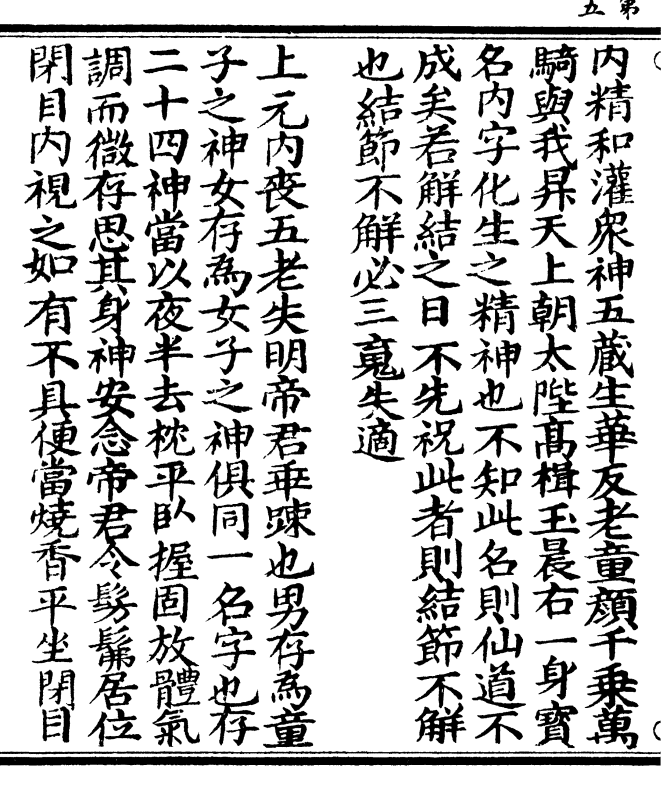 第
五
内精和灌衆神五蔵生華反老童顔千乗萬
騎與我昇天上朝太陛髙楫玉晨右一身寳
名内字化生之精神也不知此名則仙道不
成矣若解結之日不先祝此者則結節不解
也結節不解必三䰟失適
上元内喪五老失明帝君垂踈也男存為童
子之神女存為女子之神俱同一名字也存
二十四神當以夜半去枕平卧握固放體氣
調而微存思其身神安念帝君令髣髴居位
閉目内視之如有不具便當燒香平坐閉目